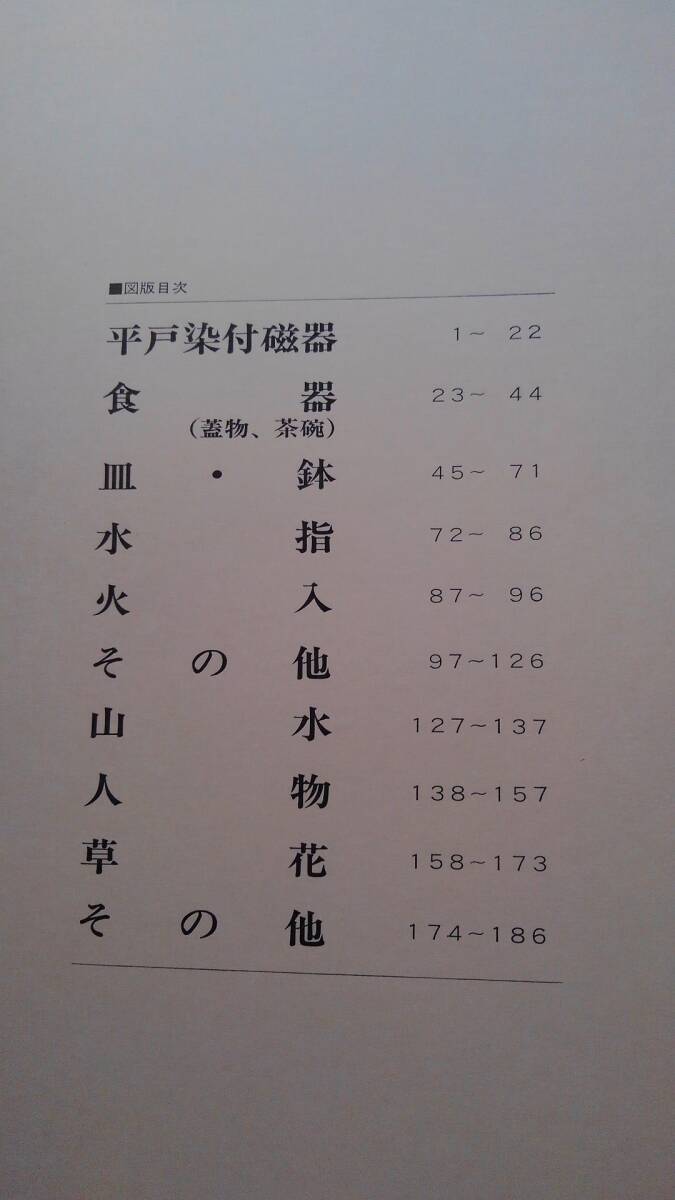 ■図版目次
平戸染付磁器 1～ 22
食器 23～ 44
(蓋物、茶碗)
皿・鉢 45～ 71
水指 72～ 86
火入 87～ 96
その他 97～126
山水 127～137
人物 138～157
草花 158～173
その他 174～186